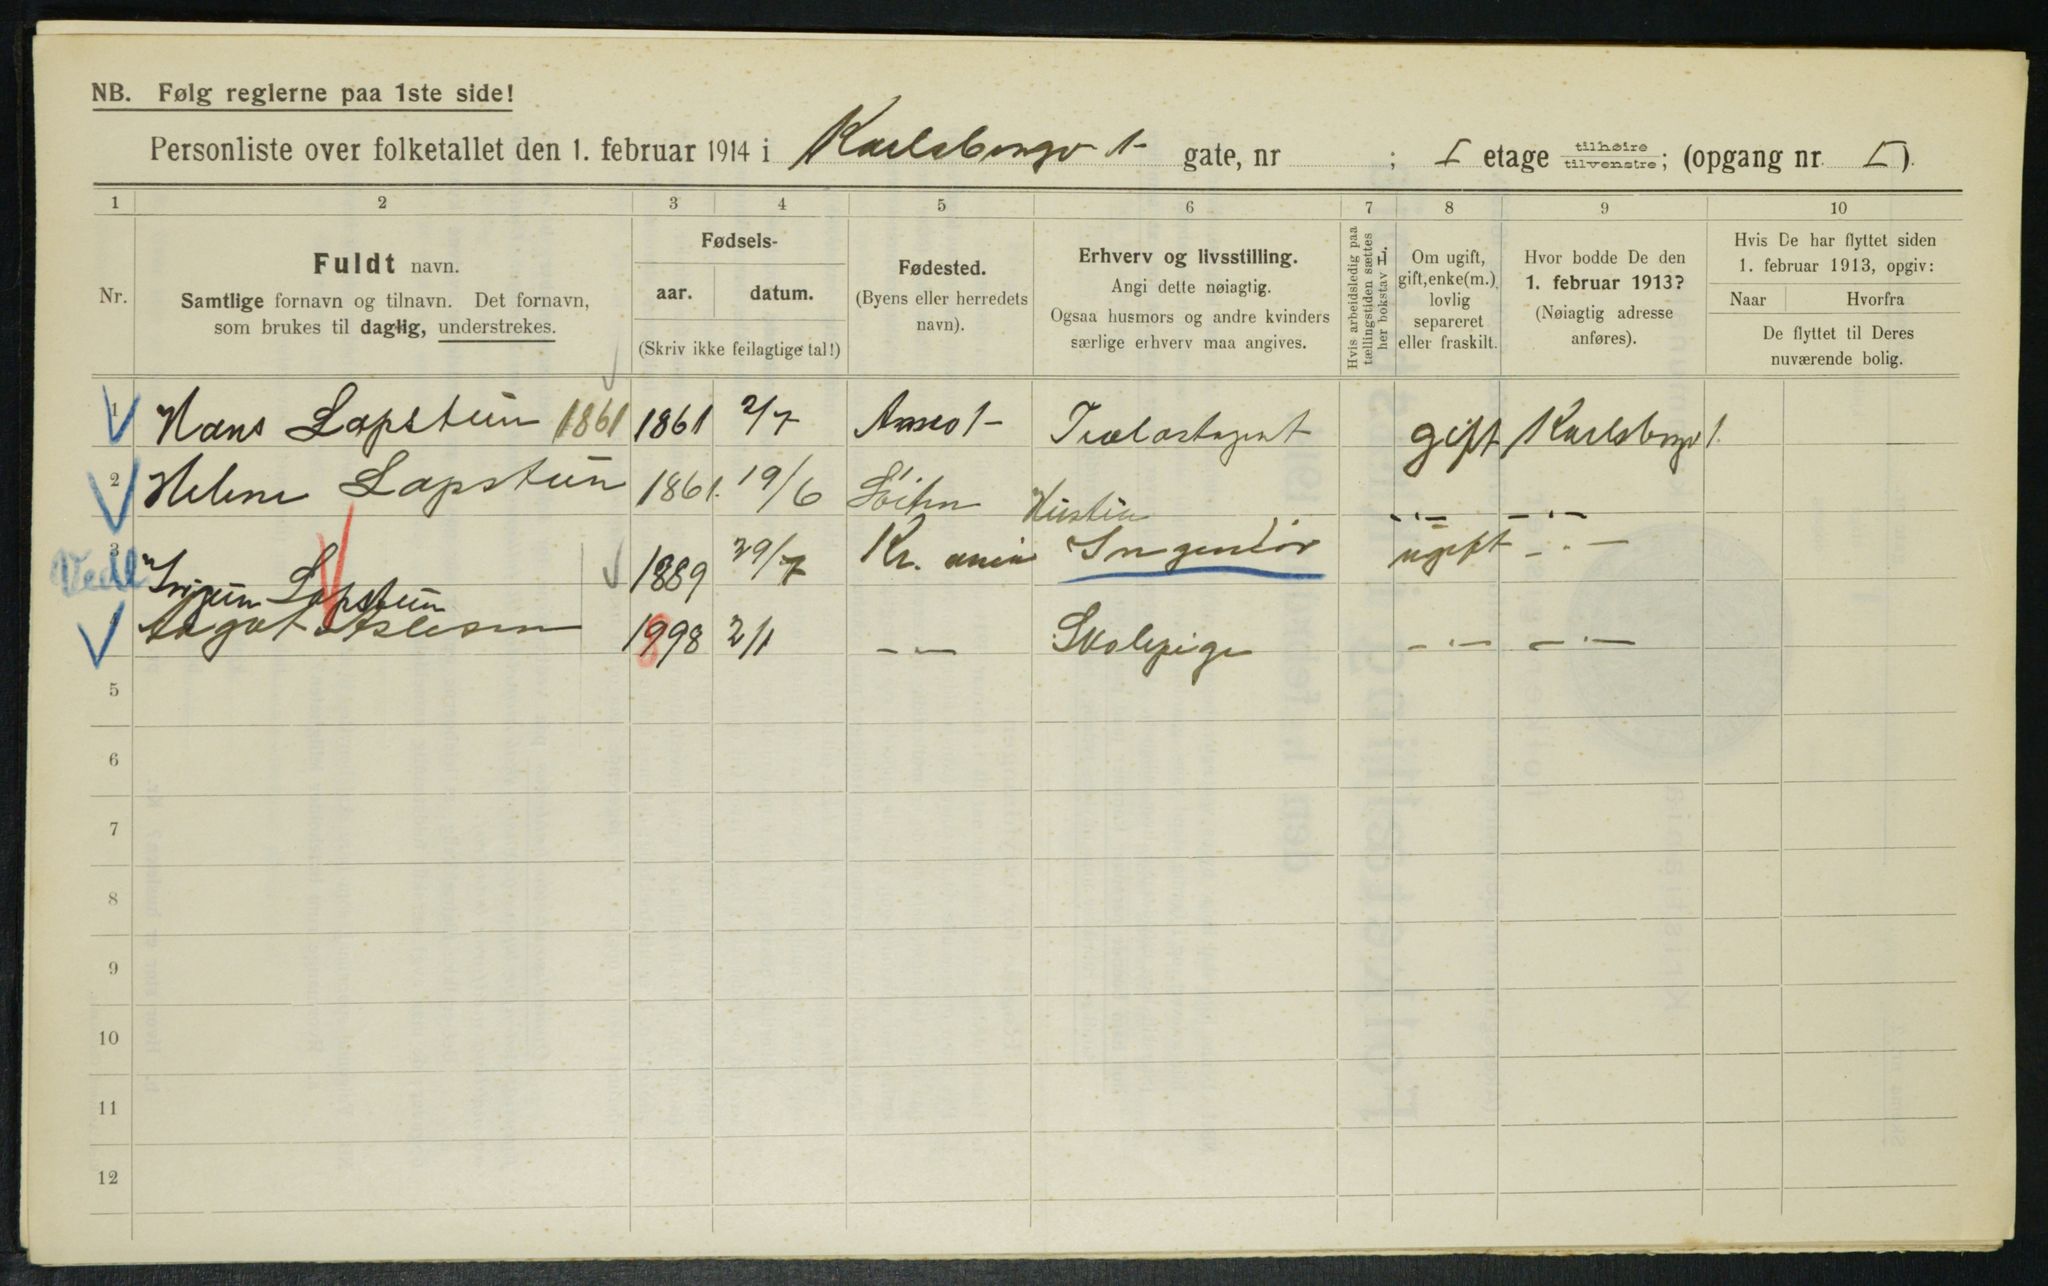 NB. Følg reglerne paa 1ste side!
Personliste over folketallet den 1. februar 1914 i Karlsborgv 1- gate, nr ; I etage tilhøire tilvenstre; (opgang nr. I).
1 2 3 4 5 6 7 8 9 10
Nr.
Fuldt navn.
Samtlige fornavn og tilnavn. Det fornavn,
som brukes til daglig, understrekes.
Fødsels-
aar. datum.
(Skriv ikke feilagtige tal!)
Fødested.
(Byens eller herredets
navn).
Erhverv og livsstilling.
Angi dette nøiagtig.
Ogsaa husmors og andre kvinders
særlige erhverv maa angives.
Hvis arbeidsledig paa
tællingstiden sættes
her bokstav L.
Om ugift,
gift, enke(m.),
lovlig
separeret
eller fraskilt.
Hvor bodde De den
1. februar 1913?
(Nøiagtig adresse
anføres).
Hvis De har flyttet siden
1. februar 1913, opgiv:
Naar Hvorfra
De flyttet til Deres
nuværende bolig.
1 Hans Lapstün 1861 1861 2/7 Trælastagent gift Karlsborgv 1.
2 Helene Lapstün 1861. 19/6 Hustru -..- -..-
Vedl 3 Lapstün 1889 29/7 Kr. ania Ingeniör ugift -..-
4 Aagot Aslesen 1998 8 2/1 -..- Skolepige -..- -..-
5
6
7
8
9
10
11
12